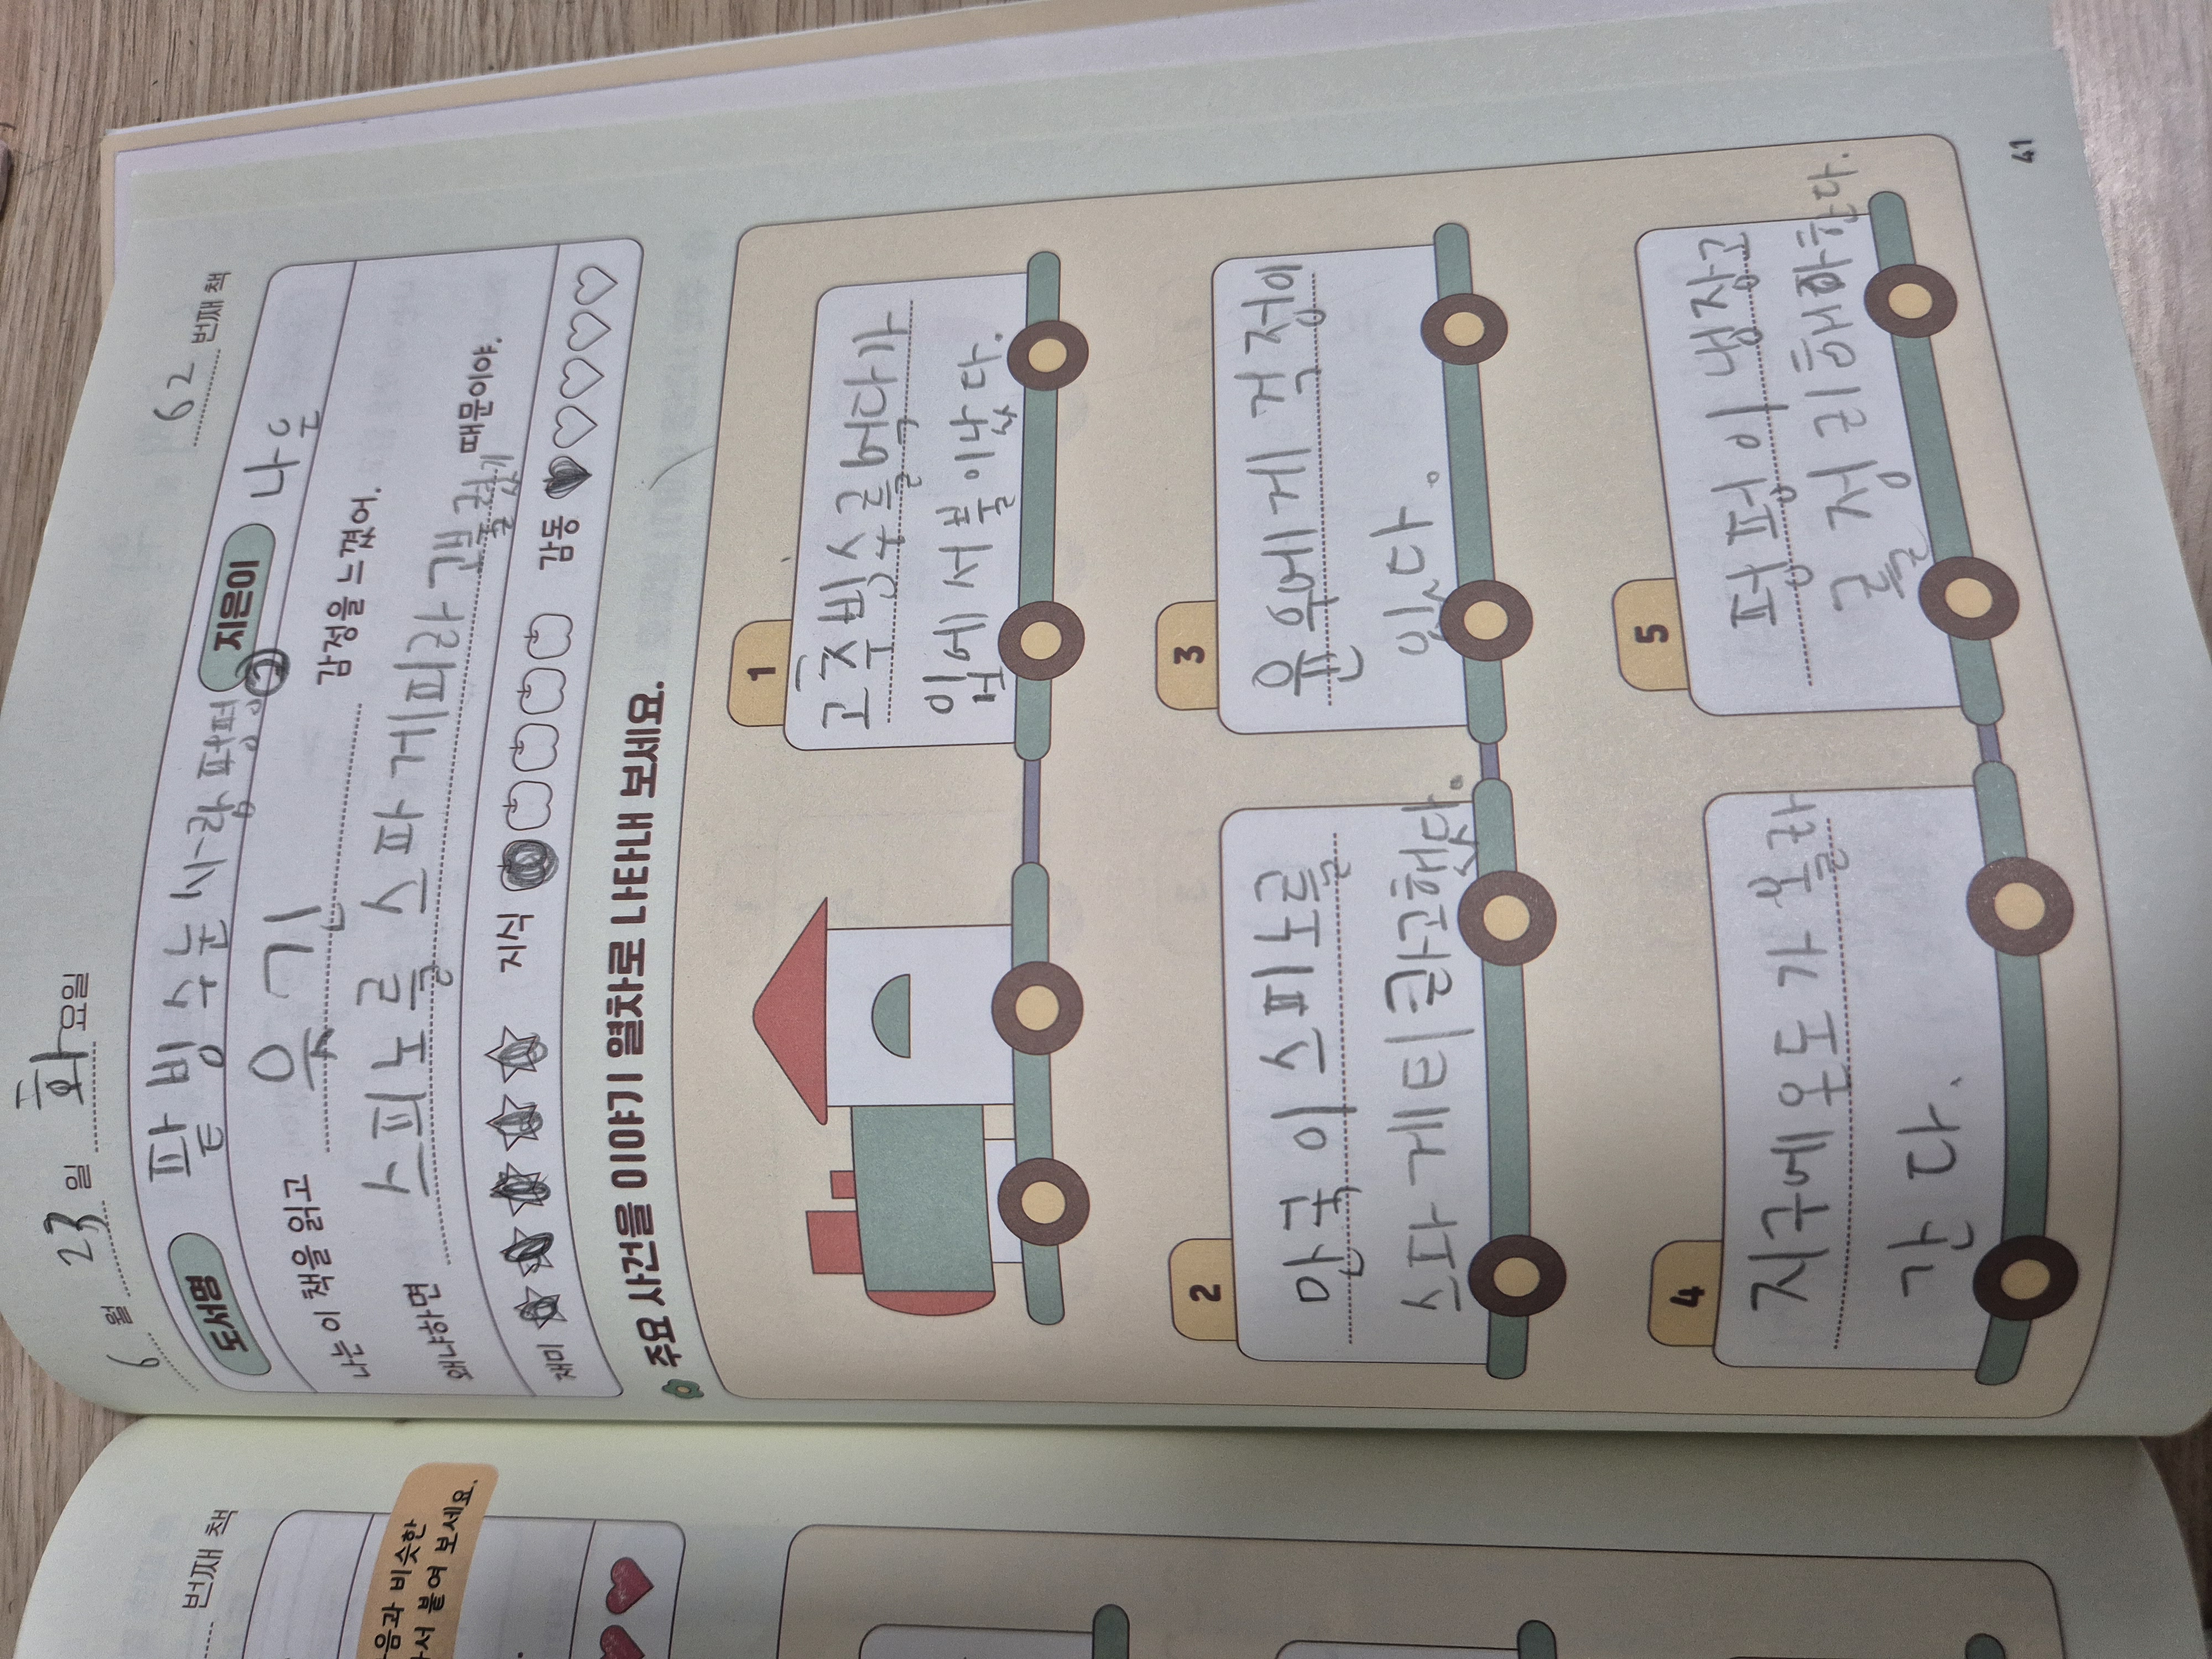 6월 23일 화요일
62 번째 책
도서명 팥빙수눈사람펑펑2 지은이 나은
나는 이 책을 읽고 웃긴 감정을 느꼈어.
왜냐하면 스피노를 스파게피라고
때문이야.
재미 지식 감동
주요 사건을 이야기 열차로 나타내 보세요.
1
고추빙수를 먹다가
입에서 불이 났다.
2
만국이 스피노를
스파게티라고했다.
3
윤우에게 걱정이
있다.
4
지구에 온도가 올라
간다.
5
펑펑이 냉장고
를 정리해
한다.
41
번째 책
음과 비슷한
서 붙여 보세요.